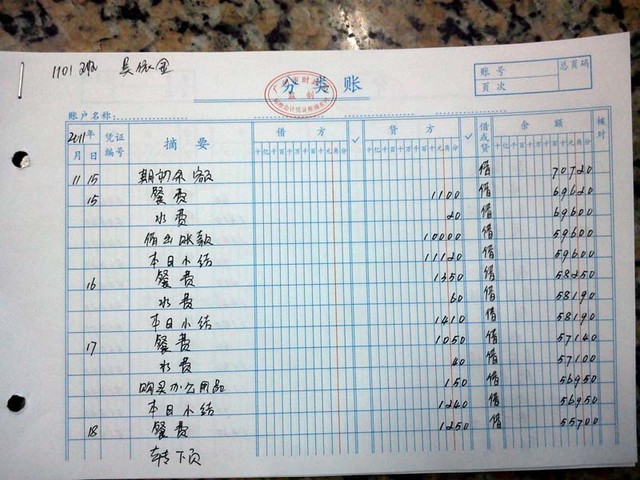 1101班
分类账
账号 总页码
页次
账户名称:
2011年 凭证编号 摘要 借方 ✓ 贷方 ✓ 借或贷 余额 核对
月 日 千百十亿千百十万千百十元角分
11 15 期初余额 借 70720
15 餐费 1100 借 69620
水费 20 借 69600
借出账款 10000 借 59600
本日小结 11120 借 59600
16 餐费 1350 借 58250
水费 60 借 58190
本日小结 1410 借 58190
17 餐费 1050 借 57140
水费 40 借 57100
购买办公用品 150 借 56950
本日小结 1240 借 56950
18 餐费 1250 借 55700
转下页